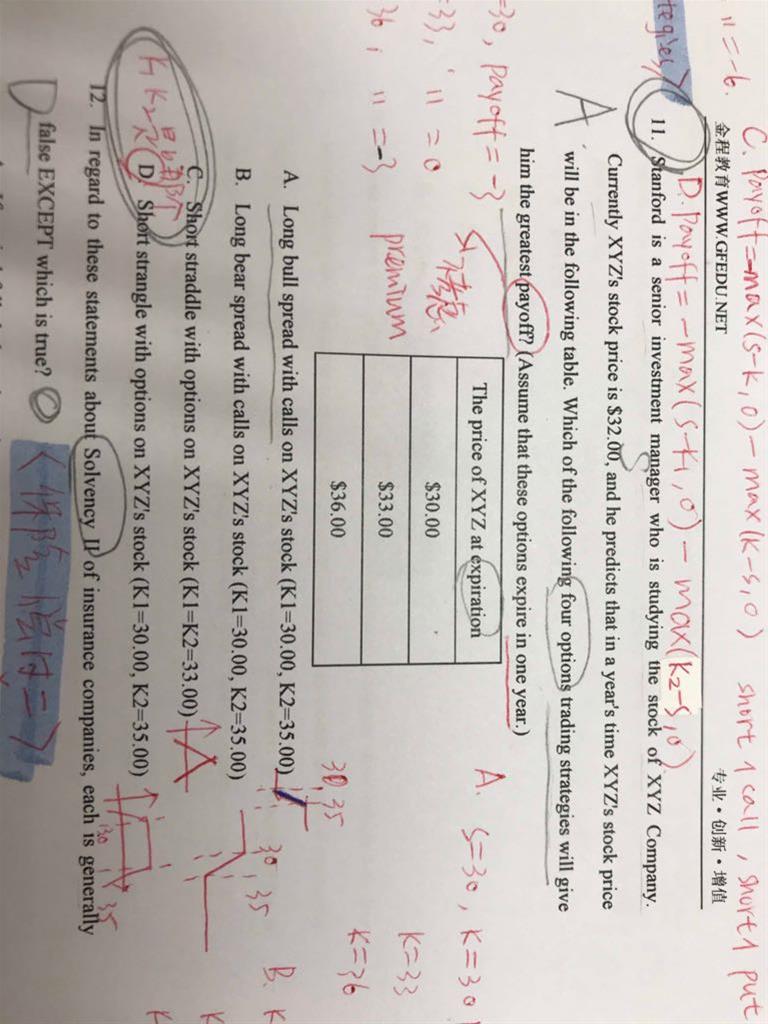 C. payoff=-max(s-k,0)-max(k-s,0) short 1 call, short 1 put
" =-6.
金程教育WWW.GFEDU.NET 专业·创新·增值
D. payoff=-max(s-k1,0)-max(k2-s,0)
tegies>
11. Stanford is a senior investment manager who is studying the stock of XYZ Company.
Currently XYZ's stock price is $32.00, and he predicts that in a year's time XYZ's stock price
A
will be in the following table. Which of the following four options trading strategies will give
him the greatest payoff? (Assume that these options expire in one year.)
=30, payoff=-3
=33, " =0
36, " =-3
premium
The price of XYZ at expiration
$30.00
$33.00
$36.00
A. s=30, k=30
k=33
k=36
A. Long bull spread with calls on XYZ's stock (K1=30.00, K2=35.00)
30 35
B. Long bear spread with calls on XYZ's stock (K1=30.00, K2=35.00)
30 35
B. K
C. Short straddle with options on XYZ's stock (K1=K2=33.00)
K
D. Short strangle with options on XYZ's stock (K1=30.00, K2=35.00)
30 35
K
12. In regard to these statements about Solvency II of insurance companies, each is generally
false EXCEPT which is true?
D